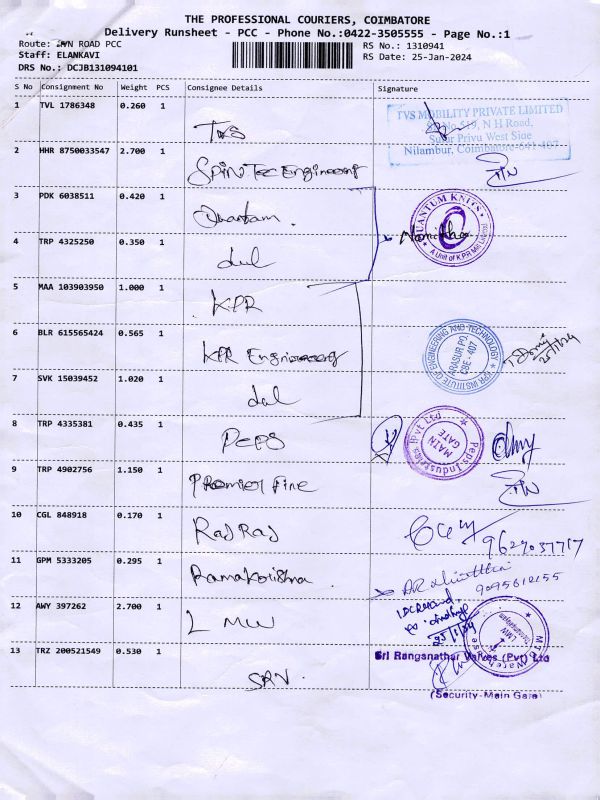 THE PROFESSIONAL COURIERS, COIMBATORE
Delivery Runsheet - PCC - Phone No.:0422-3505555 - Page No.:1
Route: AVN ROAD PCC
RS No.: 1310941
Staff: ELANKAVI
RS Date: 25-Jan-2024
DRS No.: DCJB131094101
S No Consignment No Weight PCS Consignee Details Signature
1 TVL 1786348 0.260 1 TVS
TVS MOBILITY PRIVATE LIMITED
N H Road,
West Side
Nilambur, Coimbatore-641 407
2 HHR 8750033547 2.700 1 Spin Tec Engineering
3 PDK 6038511 0.420 1 Quantum
QUANTUM KNITS
A Unit of KPR Mill Limited
4 TRP 4325250 0.350 1 dul
5 MAA 103903950 1.000 1 KPR
6 BLR 615565424 0.565 1 KPR Engineering
KPR INSTITUTE OF ENGINEERING AND TECHNOLOGY
ARASUR PO
CBE - 407
25/1/24
7 SVK 15039452 1.020 1 dul
8 TRP 4335381 0.435 1 PEPS
Peps Industries (P)vt Ltd
MAIN
GATE
9 TRP 4902756 1.150 1 Premier Fine
10 CGL 848918 0.170 1 Raj Raj
9629037717
11 GPM 5333205 0.295 1 Ramakrishna
9095610155
12 AWY 397262 2.700 1 LMW
25/1/24
LMW
13 TRZ 200521549 0.530 1 SRV
Sri Ranganathar Valves (Pvt) Ltd
(Security-Main Gate)